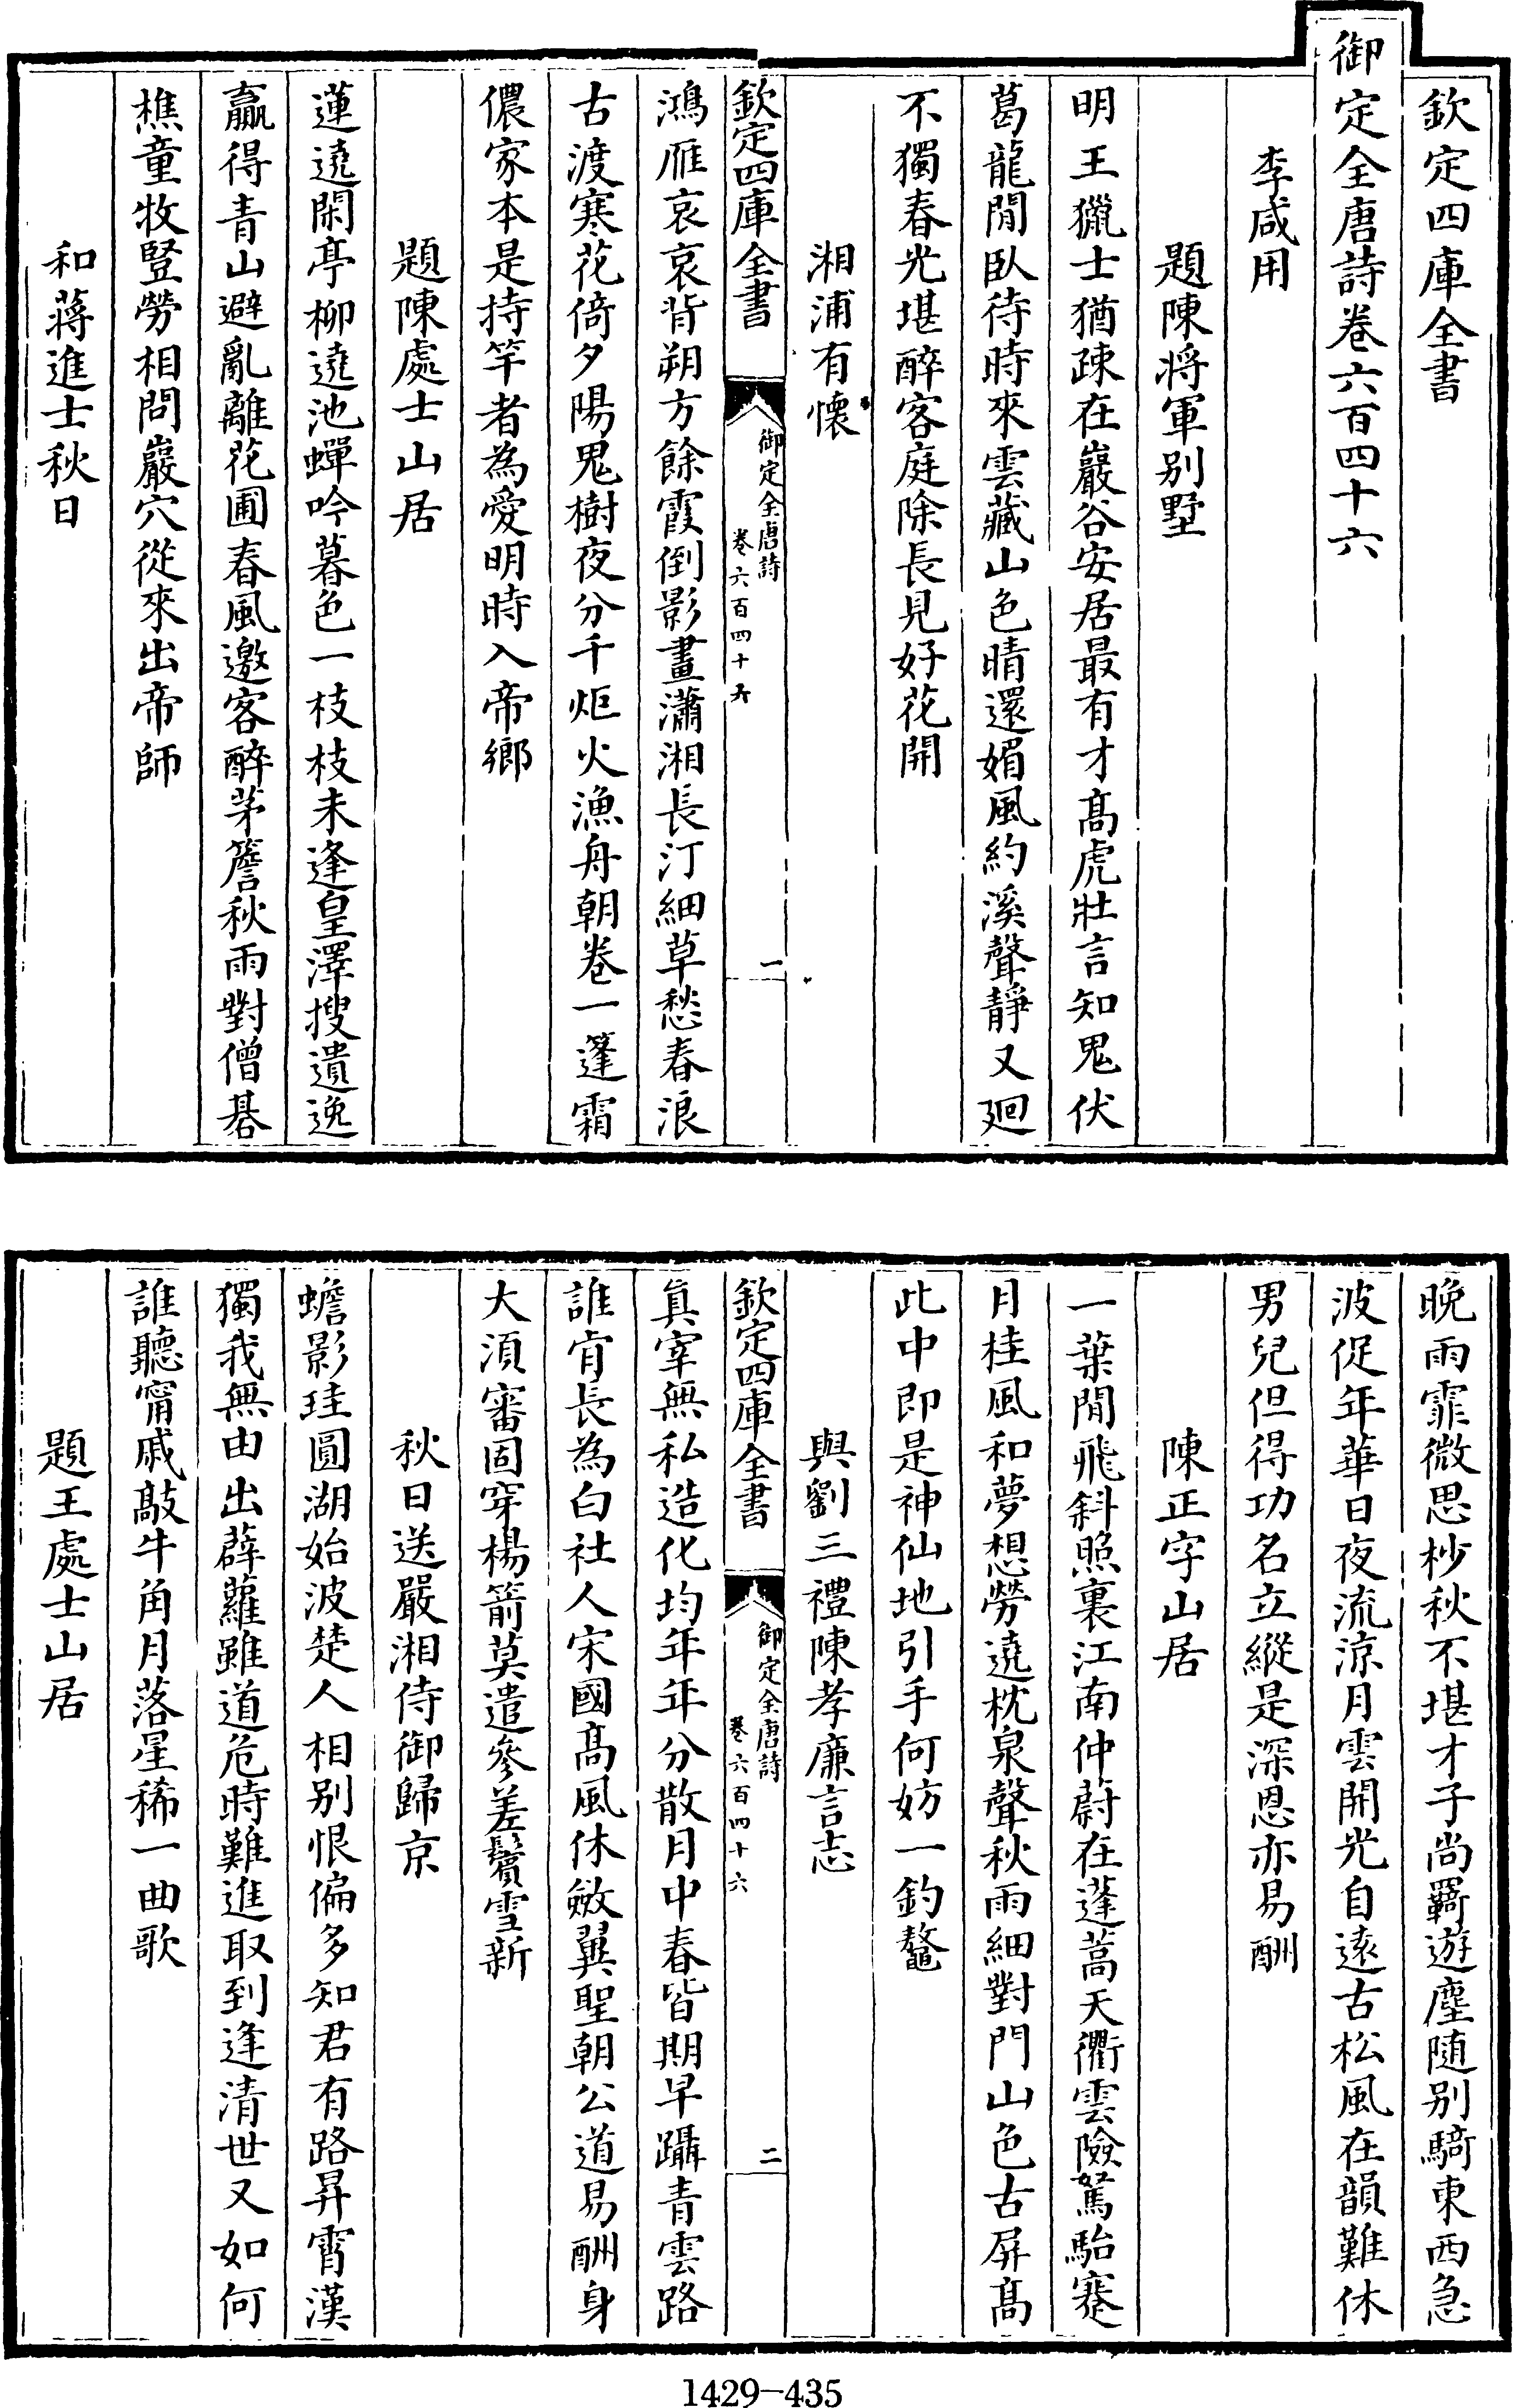 欽定四庫全書
御定全唐詩卷六百四十六
李咸用
題陳將軍别墅
明王獵士猶疎在巖谷安居最有才髙虎壯言知鬼伏
葛龍閒臥待時來雲藏山色晴還媚風約溪聲靜又廻
不獨春光堪醉客庭除長見好花開
湘浦有懷
欽定四庫全書
御定全唐詩
卷六百四十六
一
鴻雁哀哀背朔方餘霞倒影畫瀟湘長汀細草愁春浪
古渡寒花倚夕陽鬼樹夜分千炬火漁舟朝卷一篷霜
儂家本是持竿者為愛明時入帝鄉
題陳處士山居
蓮遶閑亭柳遶池蟬吟暮色一枝枝未逢皇澤搜遺逸
贏得青山避亂離花圃春風邀客醉茅簷秋雨對僧碁
樵童牧豎勞相問巖穴從來出帝師
和蔣進士秋日
晚雨霏微思杪秋不堪才子尚羇遊塵随别騎東西急
波促年華日夜流涼月雲開光自逺古松風在韻難休
男兒但得功名立縱是深恩亦易酬
陳正字山居
一葉閒飛斜照裏江南仲蔚在蓬蒿天衢雲險駑駘蹇
月桂風和夢想勞遶枕泉聲秋雨細對門山色古屏髙
此中即是神仙地引手何妨一釣鼇
與劉三禮陳孝廉言志
欽定四庫全書
御定全唐詩
卷六百四十六
二
真宰無私造化均年年分散月中春皆期早躡青雲路
誰肎長為白社人宋國髙風休斂翼聖朝公道易酬身
大湏審固穿楊箭莫遣參差鬢雪新
秋日送嚴湘侍御歸京
蟾影珪圓湖始波楚人相别恨偏多知君有路昇霄漢
獨我無由出薜蘿雖道危時難進取到逢清世又如何
誰聽甯戚敲牛角月落星稀一曲歌
題王處士山居
1429-435